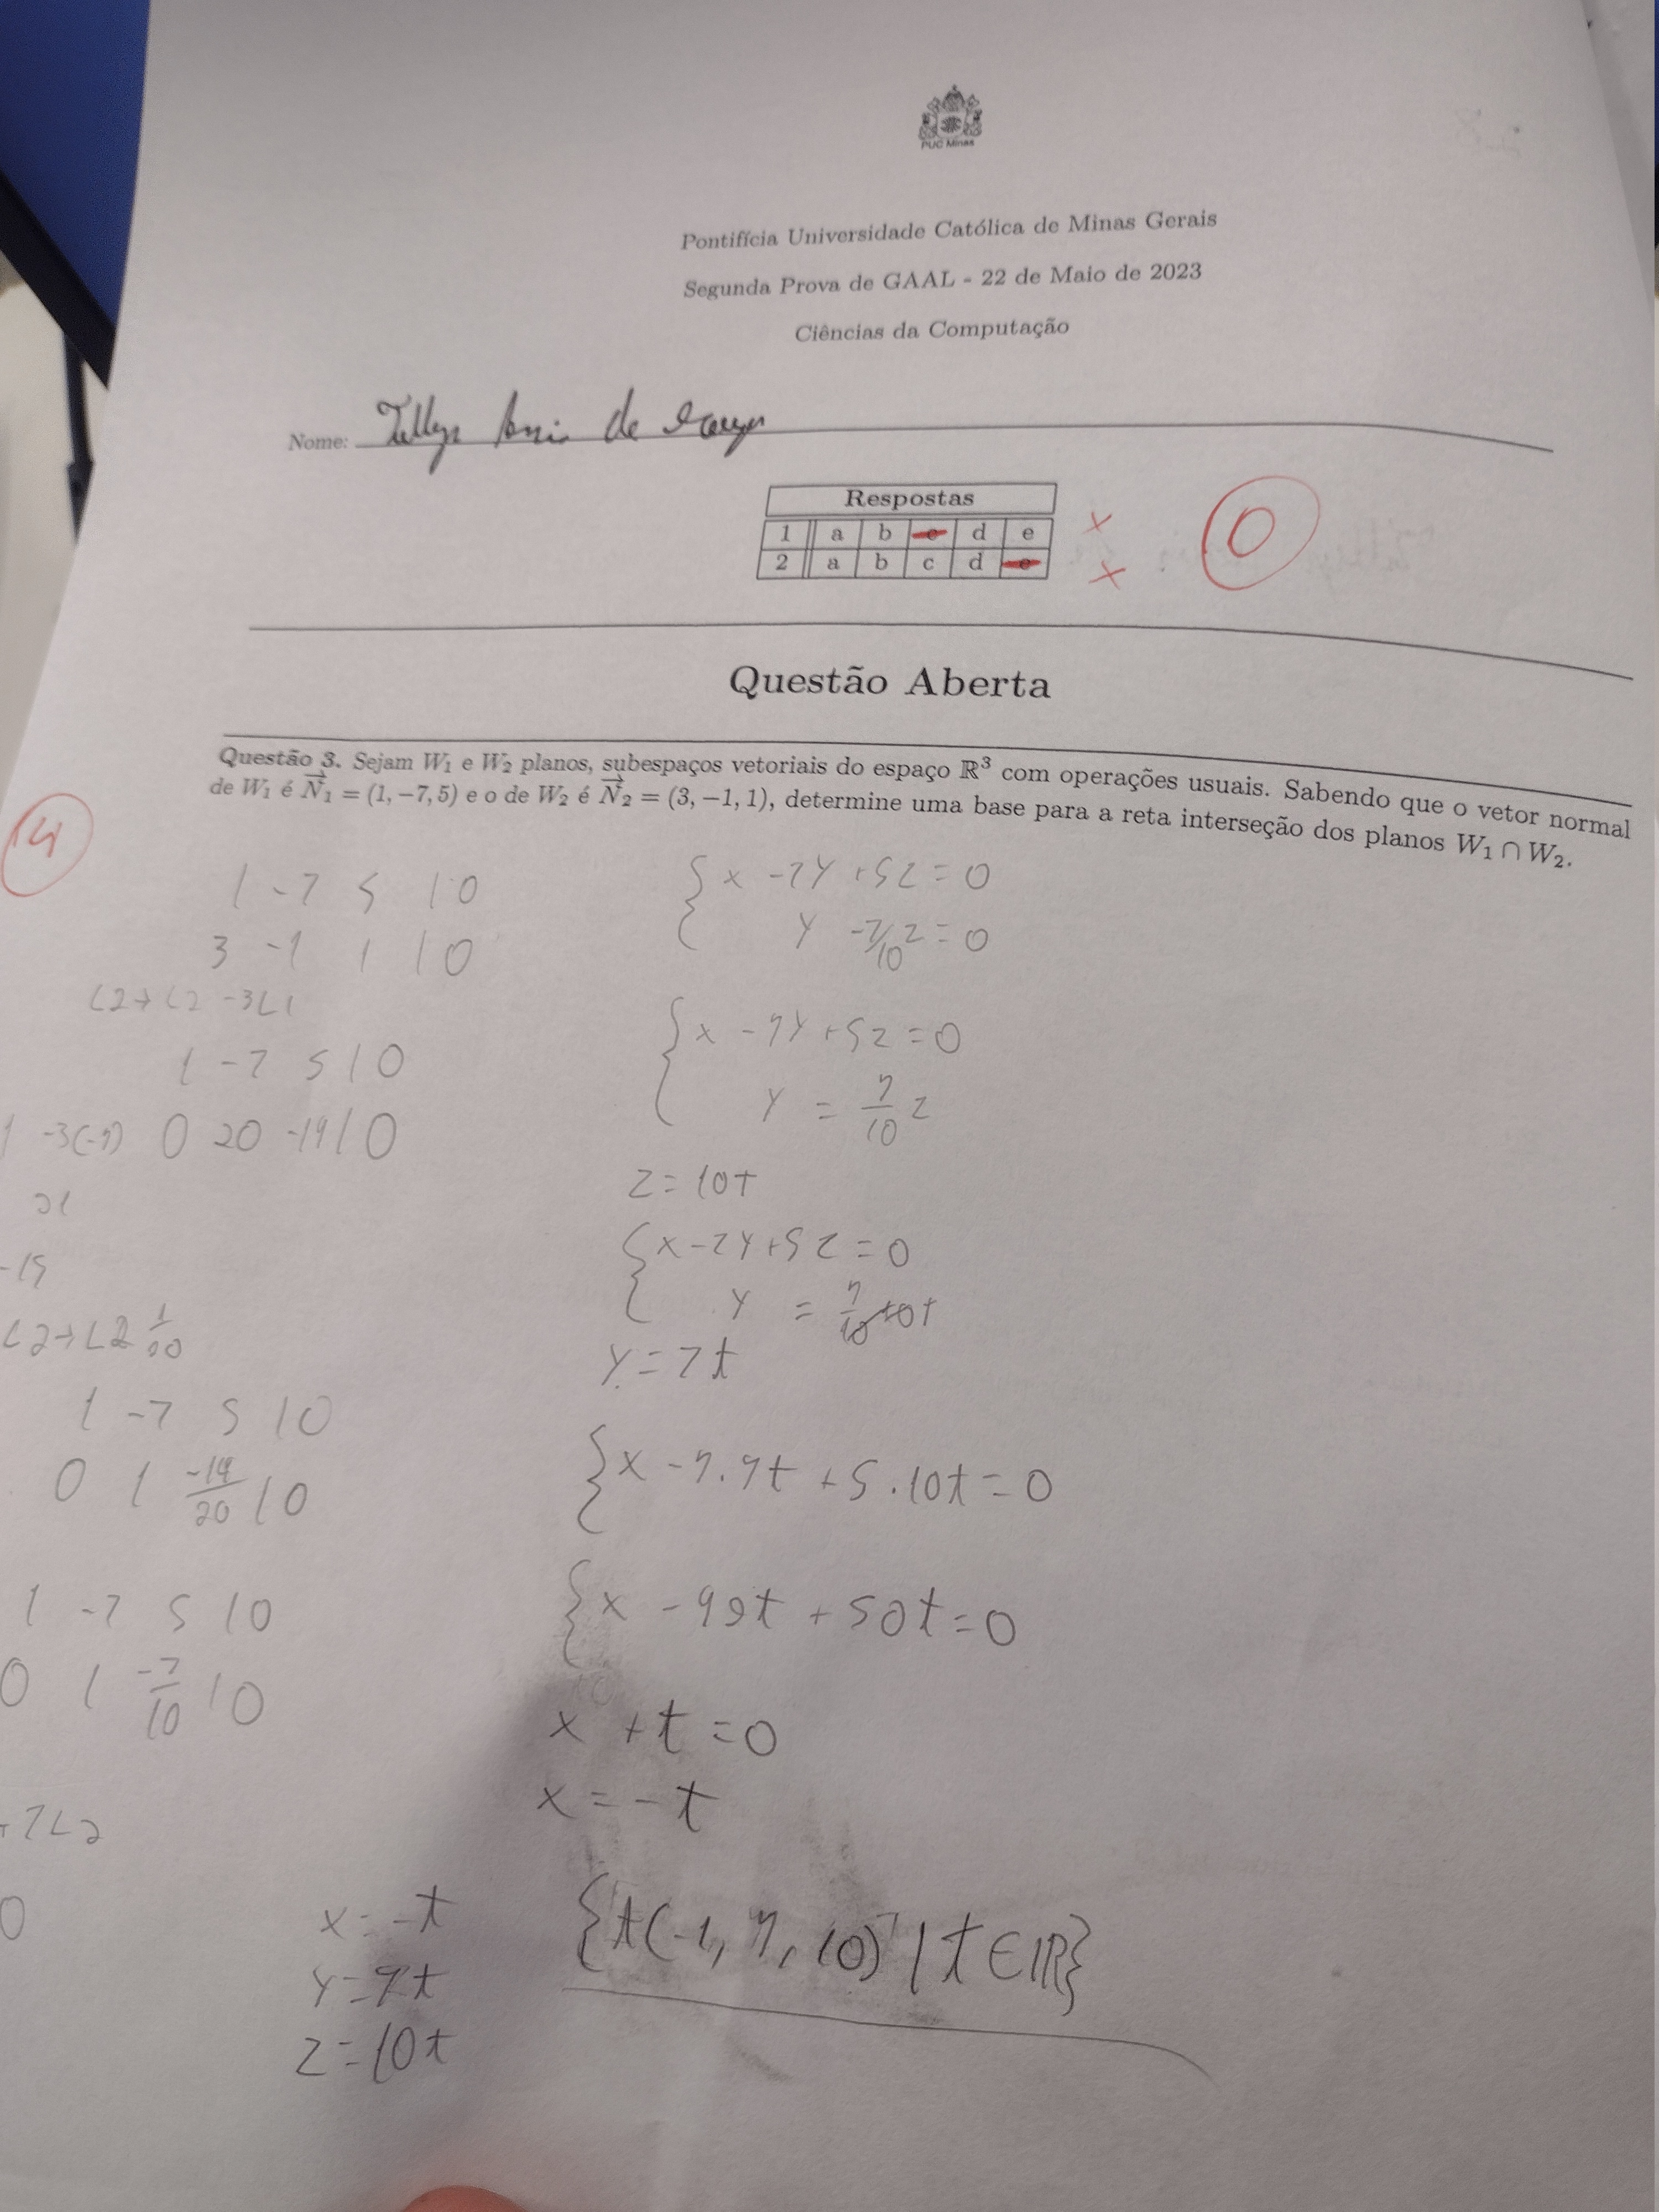 PUC Minas
Pontifícia Universidade Católica de Minas Gerais
Segunda Prova de GAAL - 22 de Maio de 2023
Ciências da Computação
Nome: de
Respostas
1 a b c d e x
2 a b c d e x
0
Questão Aberta
Questão 3. Sejam W₁ e W₂ planos, subespaços vetoriais do espaço ℝ³ com operações usuais. Sabendo que o vetor normal
de W₁ é N⃗₁ = (1, −7, 5) e o de W₂ é N⃗₂ = (3, −1, 1), determine uma base para a reta interseção dos planos W₁ ∩ W₂.
14
1 -7 5 | 0
3 -1 1 | 0
L2→L2 -3L1
1 -7 5 | 0
-3(-7) 0 20 -14 | 0
21
-15
L2→L2 1/20
1 -7 5 | 0
0 1 -14/20 | 0
1 -7 5 | 0
0 1 -7/10 | 0
+7L2
0
x = -t
y = 7t
z = 10t
{ x -7y +5z = 0
y -7/10 z = 0
{ x -7y +5z = 0
y = 7/10 z
z = 10t
{ x -7y +5z = 0
y = 7/10 10t
y = 7t
{ x -7.7t +5.10t = 0
{ x -49t + 50t = 0
x + t = 0
x = -t
{t(-1, 7, 10) | t ∈ ℝ}